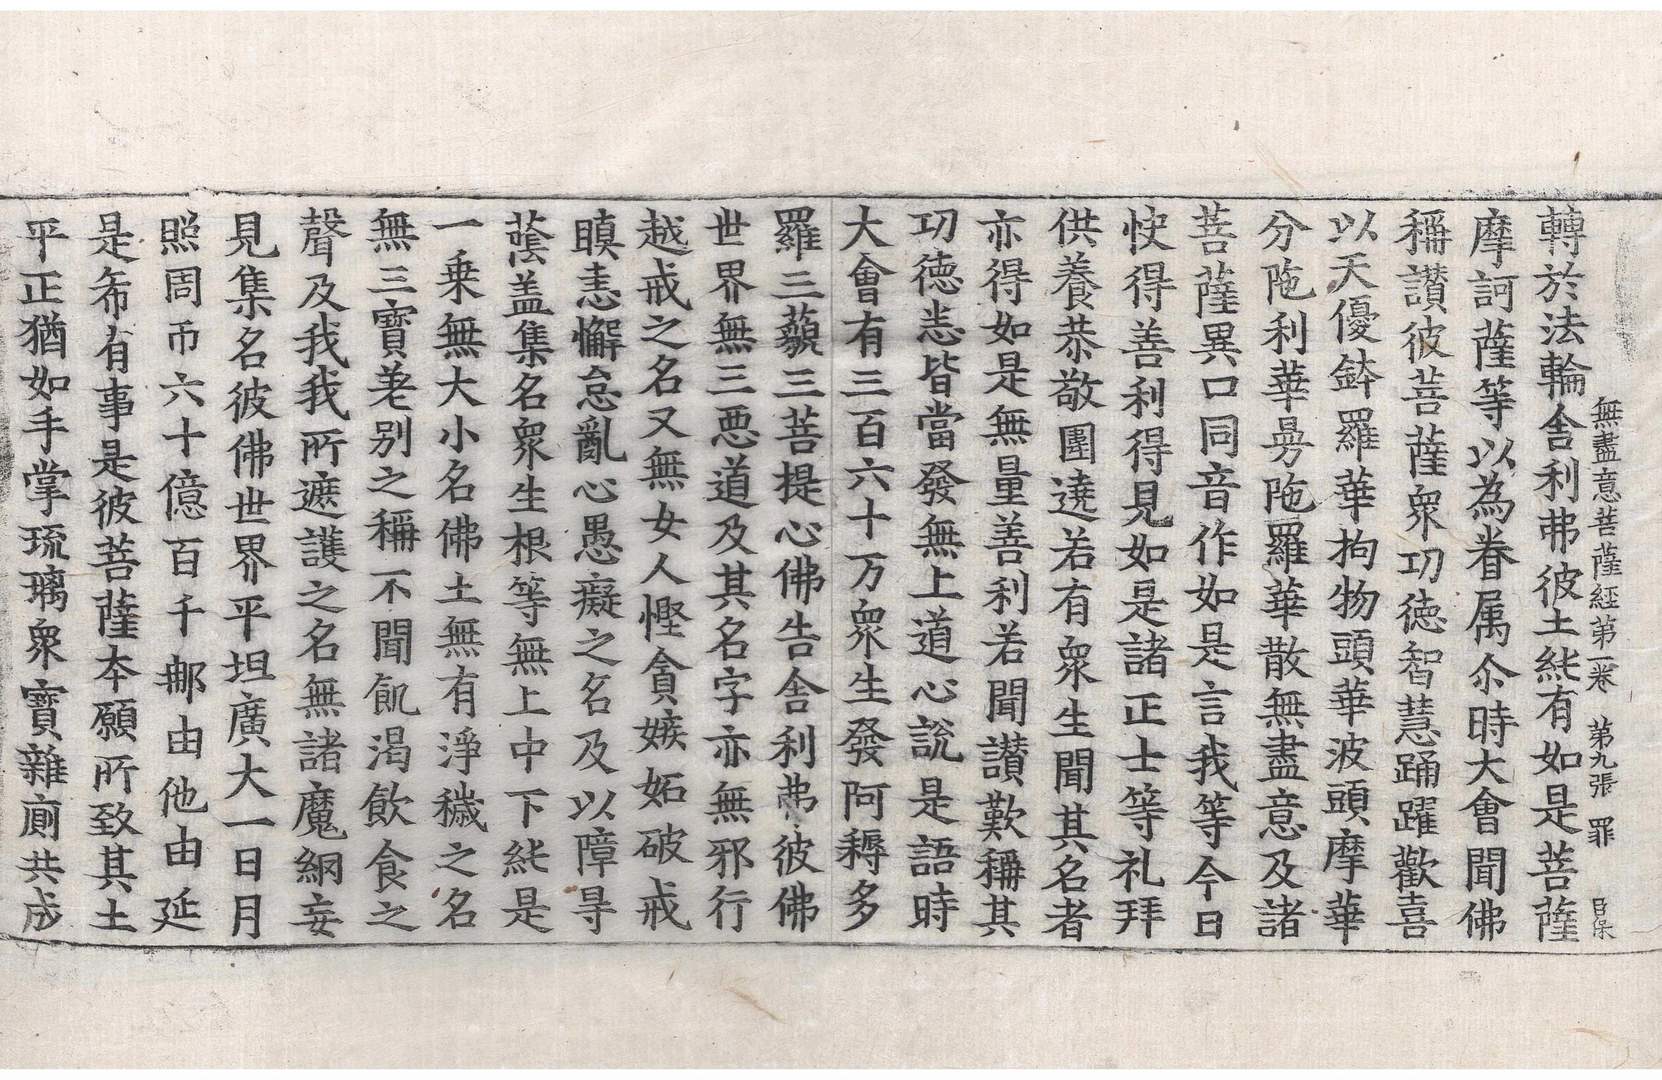 無盡意菩薩經第一卷 第九張 罪
轉於法輪舍利弗彼土純有如是菩薩
摩訶薩等以為眷属尒時大會聞佛
稱讃彼菩薩衆功德智慧踊躍歡喜
以天優鉢羅華拘物頭華波頭摩華
分陁利華㬅陁羅華散無盡意及諸
菩薩異口同音作如是言我等今日
快得善利得見如是諸正士等礼拜
供養恭敬圍遶若有衆生聞其名者
亦得如是無量善利若聞讃歎稱其
功德悉皆當發無上道心說是語時
大會有三百六十万衆生發阿耨多
羅三藐三菩提心佛告舍利弗彼佛
世界無三惡道及其名字亦無邪行
越戒之名又無女人慳貪嫉妬破戒
瞋恚懈怠亂心愚癡之名及以障㝵
蔭盖集名衆生根等無上中下純是
一乗無大小名佛土無有淨穢之名
無三寶差别之稱不聞飢渴飲食之
聲及我我所遮護之名無諸魔網妄
見集名彼佛世界平坦廣大一日月
照周帀六十億百千𨚗由他由延
是㠯有事是彼菩薩夲願所致其土
平正猶如手掌琉璃衆寶雜廁共成